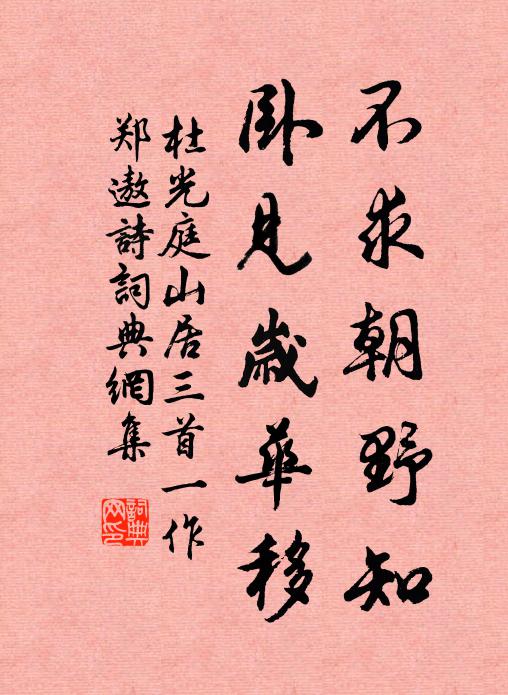 不求朝野知
卧見歲華移
杜光庭山居三首一作
郑遨詩詞典網集
詞典
网印